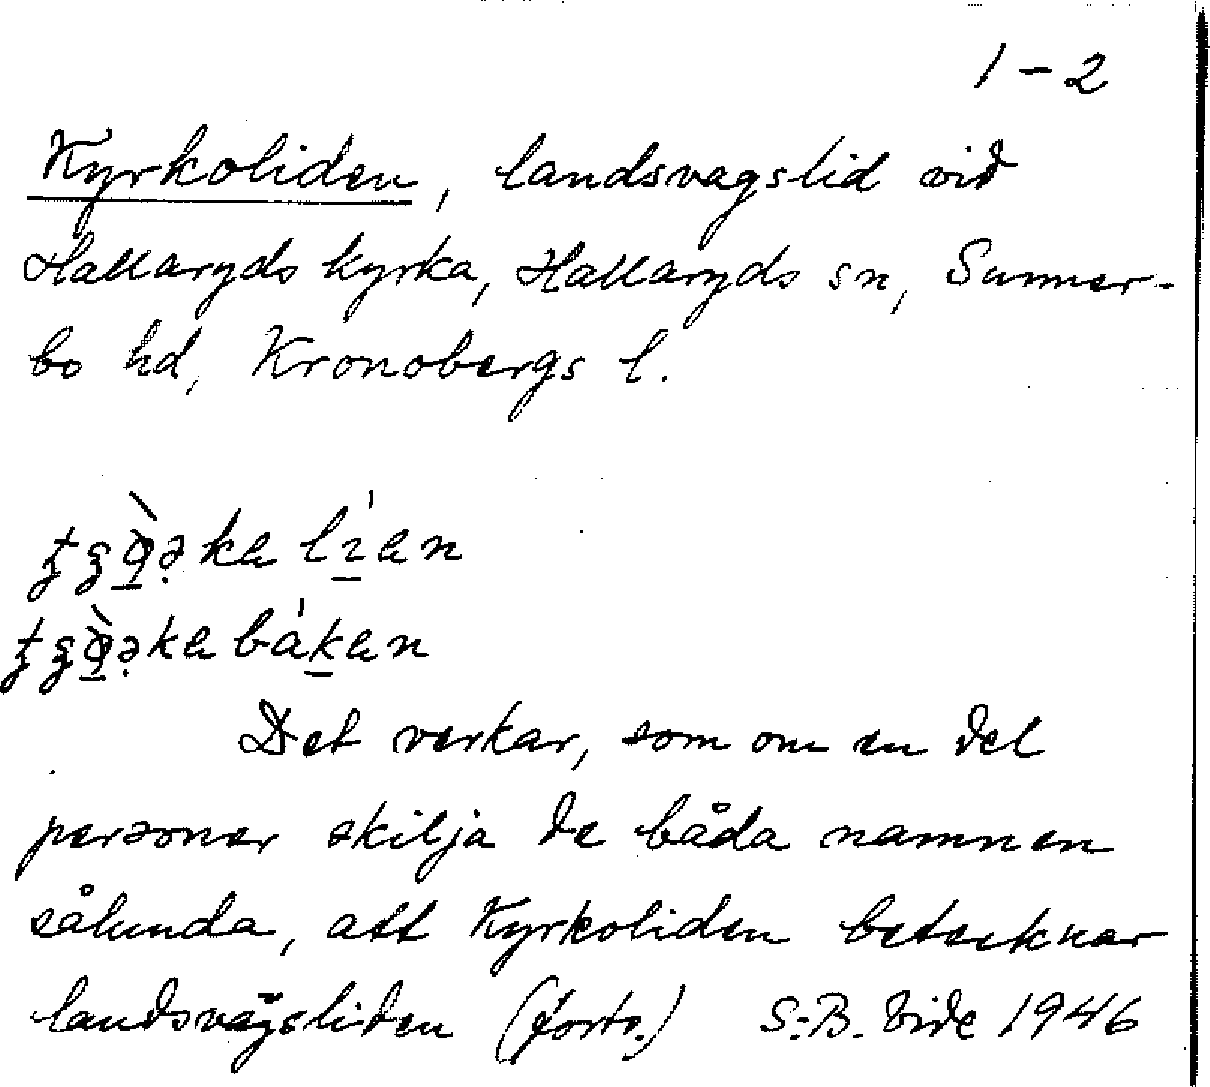 1-2
Kyrkoliden, landsvagslid vid
Hallaryds kyrka, Hallaryds sn, Sunner-
bo hd, Kronobergs l.
Det verkar, som om en del
personer skilja de båda namnen
sålunda, att Kyrkoliden betecknar
landsvägsliden (forts.) S.-B. Vide 1946